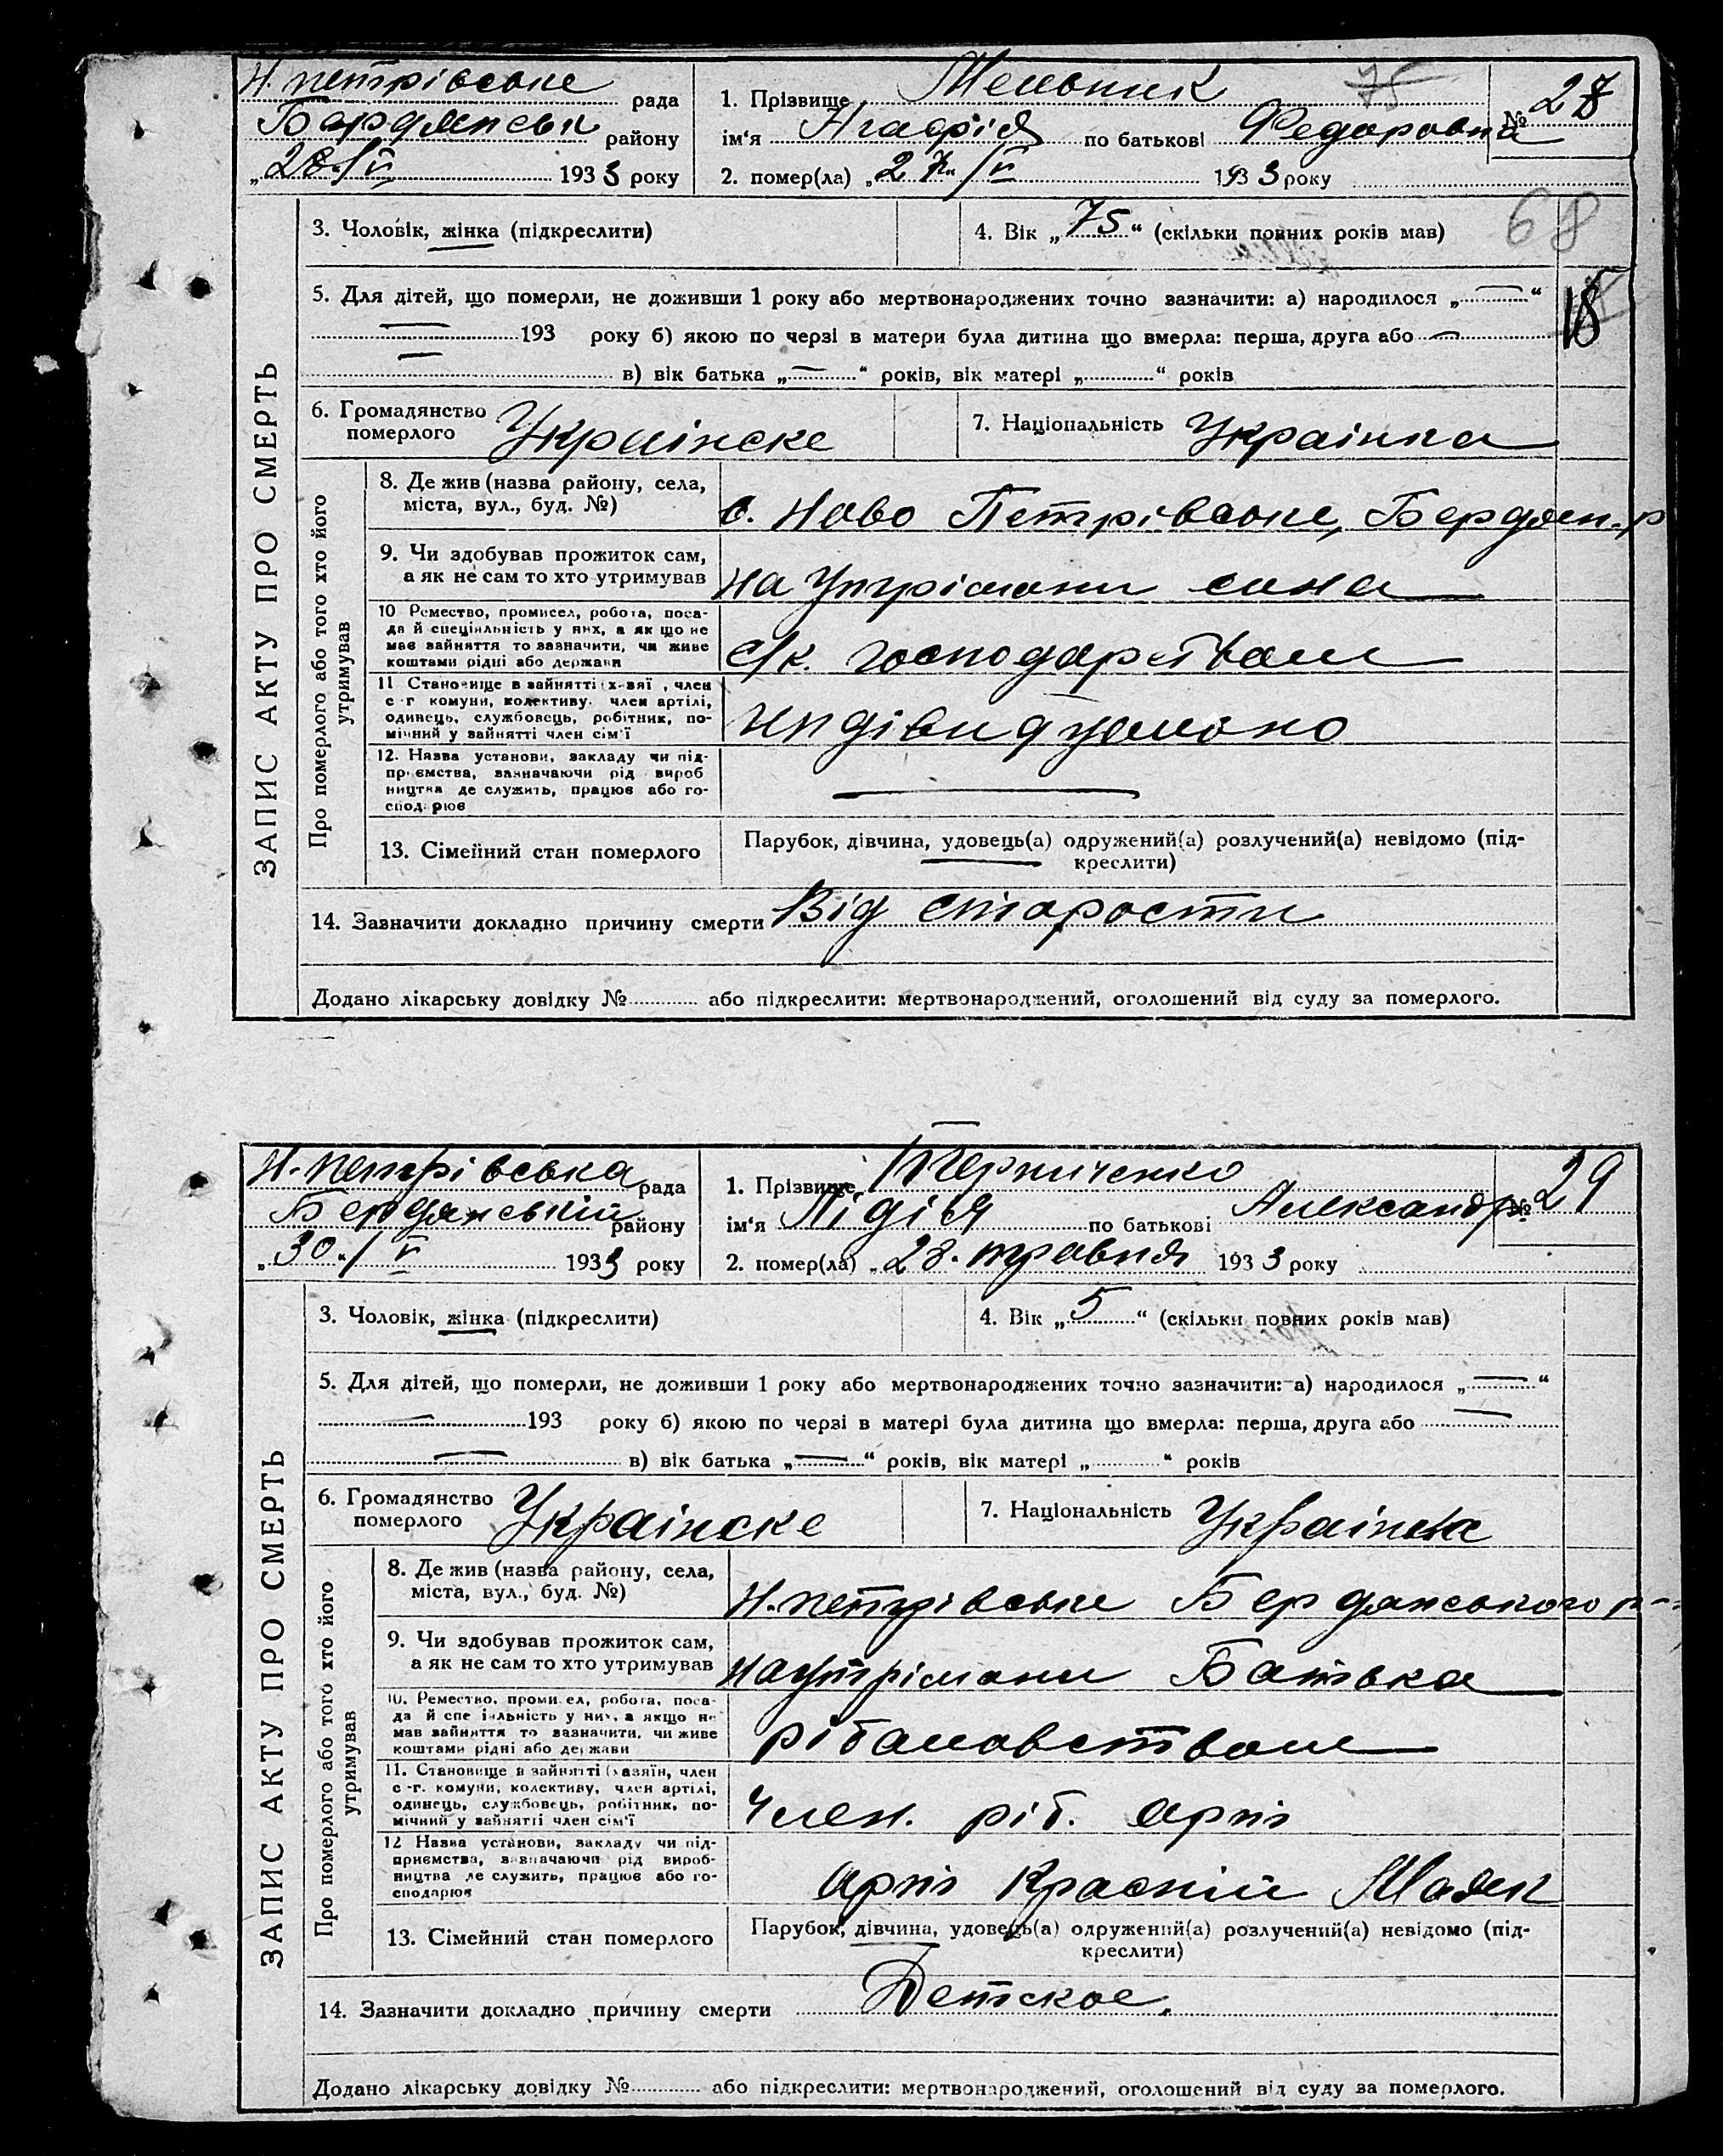 Н. петрівське рада
Бердянськ району
„28„/V 1933 року
1. Прізвище Мельник 75
ім'я Агафія по батькові Федоровна
№ 28
2. помер(ла) „27„/V 1933 року
ЗАПИС АКТУ ПРО СМЕРТЬ
3. Чоловік, жінка (підкреслити)
4. Вік „75“ (скільки повних років мав)
68
5. Для дітей, що померли, не доживши 1 року або мертвонароджених точно зазначити: а) народилося „—“
— 193 року б) якою по черзі в матери була дитина що вмерла: перша, друга або —
18
— в) вік батька „—“ років, вік матері „“ років
6. Громадянство померлого Украінске
7. Національність Украінка
Про померлого або того хто його утримував
8. Де жив (назва району, села,
міста, вул., буд. №)
с. Ново Петрівське, Бердян. р
9. Чи здобував прожиток сам,
а як не сам то хто утримував
на утрімани сина
10 Ремество, промисел, робота, поса-
да й спеціяльність у них, а як що не
має зайняття то зазначити, чи живе
коштами рідні або держави
с/х. господарством
11 Становище в зайнятті (х-зяї , член
с -г комуни, колективу, член артілі,
одинець, службовець, робітник, по-
мічний у зайнятті член сім'ї
индівидуально
12. Назва установи, закладу чи під-
приємства, зазначаючи рід вироб
ництва де служить, працює або го-
сподарює
—
13. Сімейний стан померлого
Парубок, дівчина, удовець(а) одружений(а) розлучений(а) невідомо (під-
креслити)
14. Зазначити докладно причину смерти Від старости
Додано лікарську довідку № або підкреслити: мертвонароджений, оголошений від суду за померлого.
Н. петрівська рада
Бердянський району
„30„/V 1933 року
1. Прізвище Терниченко
ім'я Лідія по батькові Александр
№ 29
2. помер(ла) „28. травня 1933 року
ЗАПИС АКТУ ПРО СМЕРТЬ
3. Чоловік, жінка (підкреслити)
4. Вік „5“ (скільки повних років мав)
5. Для дітей, що померли, не доживши 1 року або мертвонароджених точно зазначити: а) народилося „—“
— 193 року б) якою по черзі в матері була дитина що вмерла: перша, друга або —
— в) вік батька „—“ років, вік матері „“ років
6. Громадянство померлого Украінске
7. Національність Украінка
Про померлого або того хто його утримував
8. Де жив (назва району, села,
міста, вул., буд. №)
Н. петрівське Бердянського р-
9. Чи здобував прожиток сам,
а як не сам то хто утримував
на утрімани Батька
10. Ремество, промисел, робота, поса-
да й спеціяльність у них, а якщо не
мав зайняття то зазначити, чи живе
коштами рідні або держави
рібаловством
11. Становище в зайнятті (хазяїн, член
с -г. комуни, колективу, член артілі,
одинець, службовець, робітник, по-
мічний у зайнятті член сім'ї
Член. ріб. арті
12 Назва установи, закладу чи під-
приємства, зазначаючи рід вироб-
ництва де служить, працює або го-
сподарює
Арті Красній Маяк
13. Сімейний стан померлого
Парубок, дівчина, удовець(а) одружений(а) розлучений(а) невідомо (під-
креслити)
14. Зазначити докладно причину смерти Детское.
Додано лікарську довідку № або підкреслити: мертвонароджений, оголошений від суду за померлого.